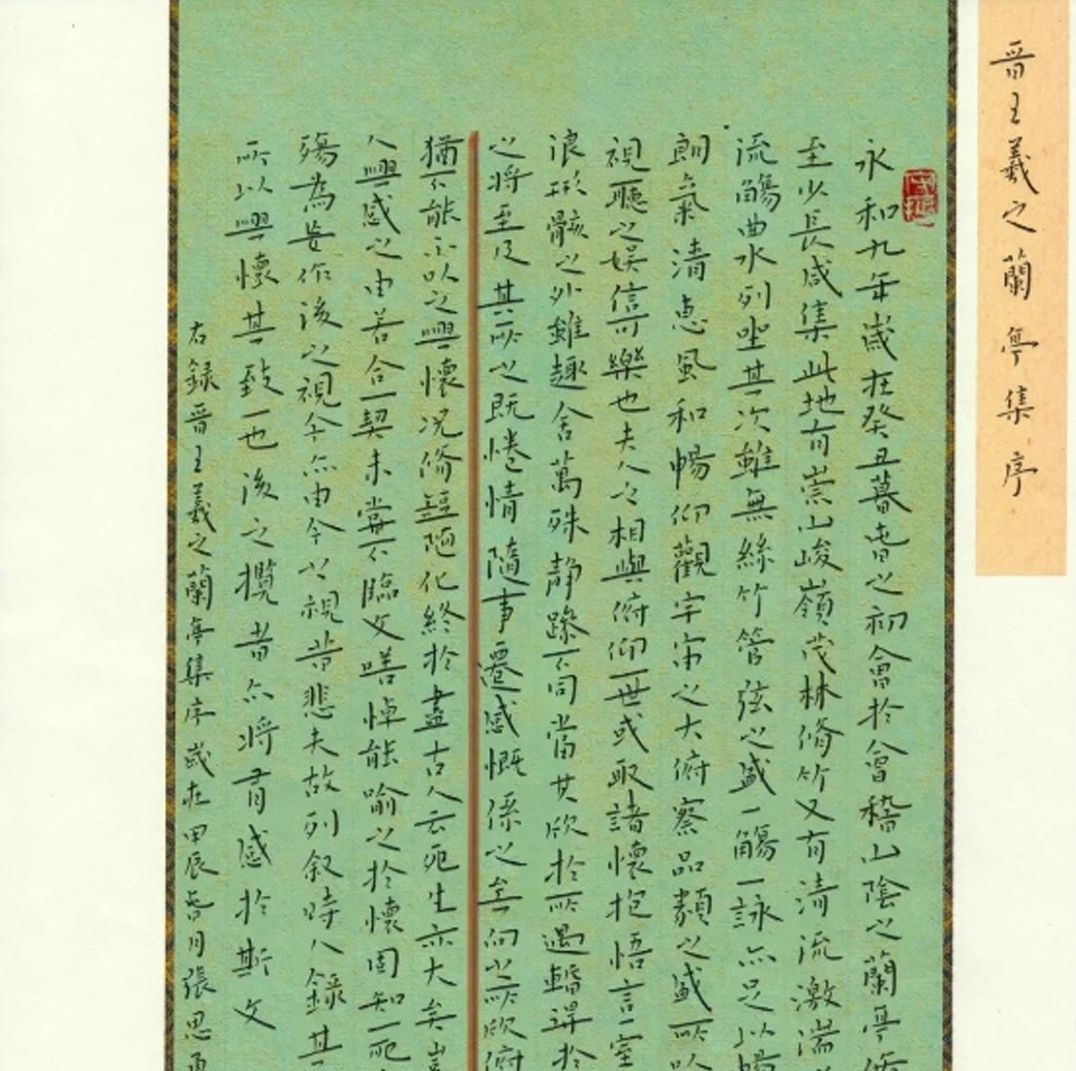 晋王羲之蘭亭集序
永和九年歲在癸丑暮春之初會於會稽山陰之蘭亭
至少長咸集此地有崇山峻嶺茂林脩竹又有清流激湍
流觴曲水列坐其次雖無絲竹管弦之盛一觴一詠亦足以暢
朗氣清惠風和暢仰觀宇宙之大俯察品類之盛所以
視聽之娛信可樂也夫人之相與俯仰一世或取諸懷抱悟言一室
浪形骸之外雖趣舍萬殊静躁不同當其欣於所遇暫得於
之將至及其所之既惓情隨事遷感慨係之矣向之所欣俯
猶不能不以之興懷况脩短随化終於盡古人云死生亦大矣豈
人興感之由若合一契未嘗不臨文嗟悼能喻之於懷固知一死
殤為妄作後之視今亦由今之視昔悲夫故列叙時人錄其
所以興懷其致一也後之攬者亦將有感於斯文
右錄晋王羲之蘭亭集序歲在甲辰春月張思